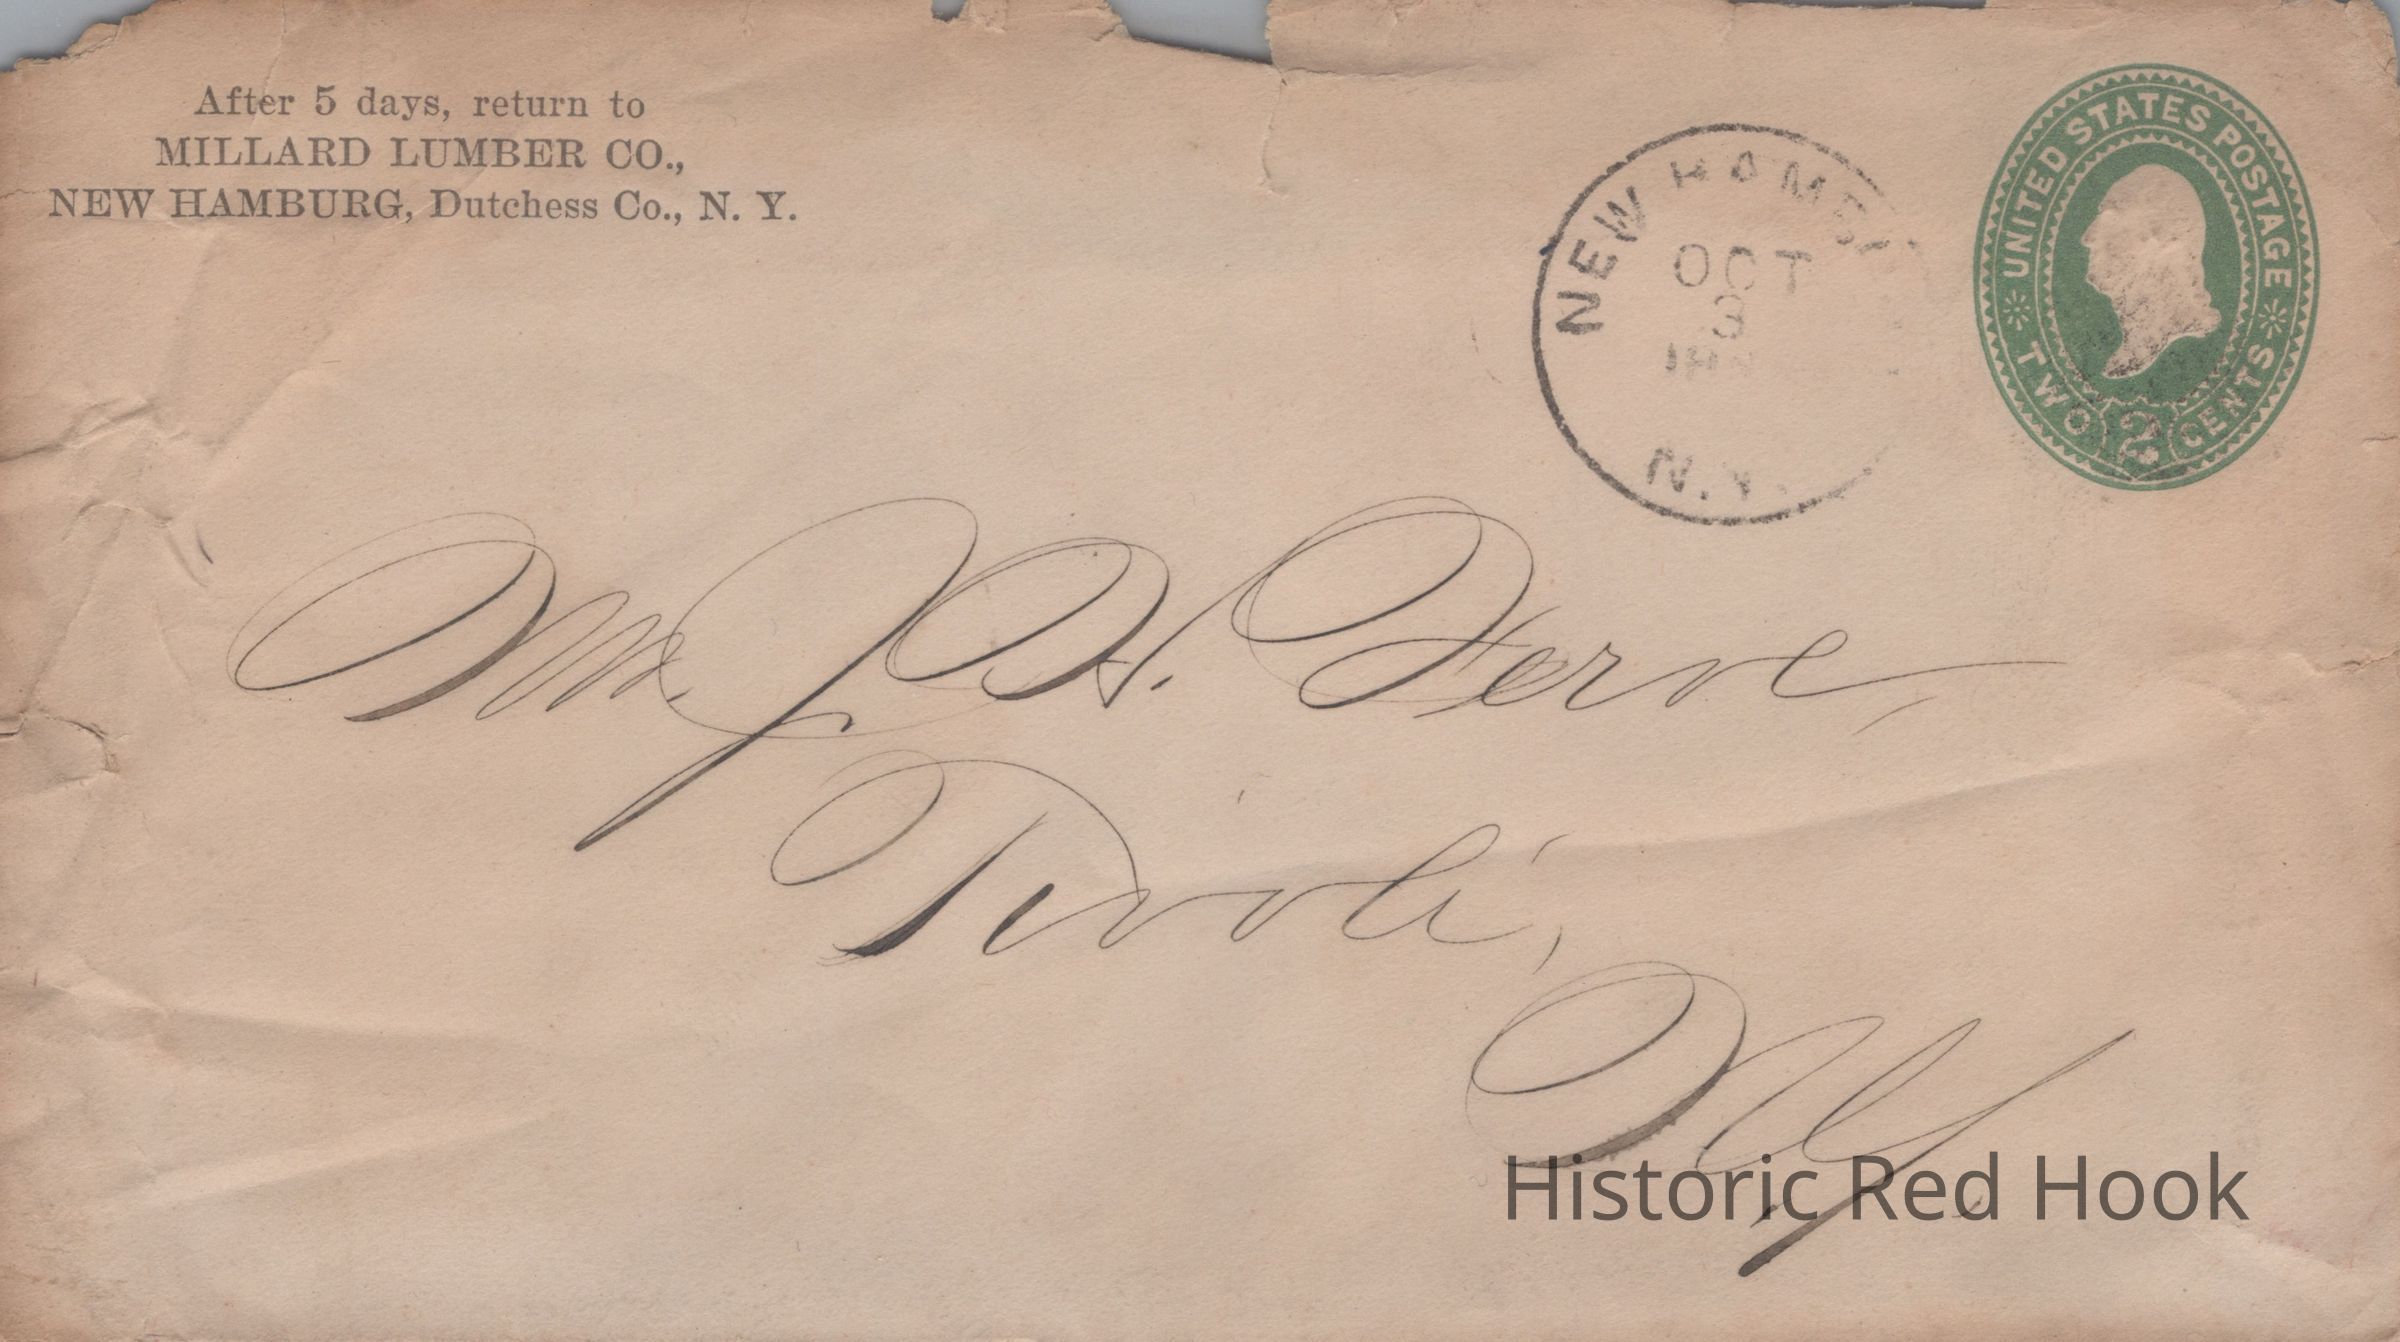 After 5 days, return to
MILLARD LUMBER CO.,
NEW HAMBURG, Dutchess Co., N. Y.
NEW HAMB
OCT
3
18
N.Y.
UNITED STATES POSTAGE
TWO 2 CENTS
Mr. J. H.
Tivoli,
N.Y.
Historic Red Hook